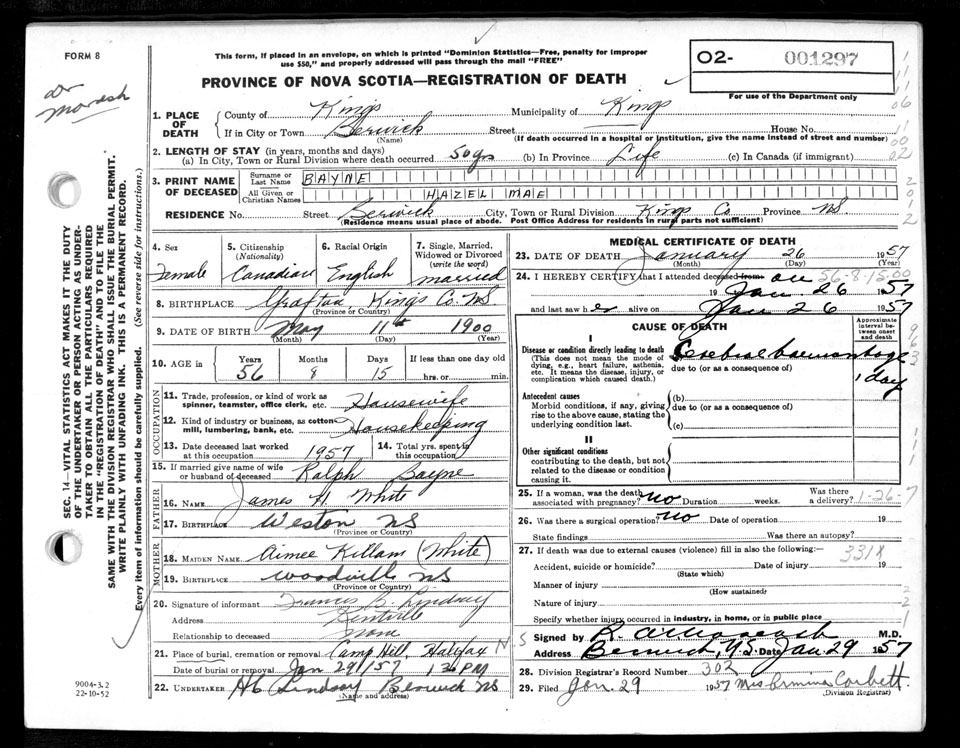 FORM 8
Dr
Morash
This form, if placed in an envelope, on which is printed "Dominion Statistics—Free, penalty for improper
use $50," and properly addressed will pass through the mail "FREE"
PROVINCE OF NOVA SCOTIA—REGISTRATION OF DEATH
02- 001297
For use of the Department only
1. PLACE OF DEATH
County of Kings Municipality of Kings
If in City or Town Berwick Street House No.
(Name) (If death occurred in a hospital or institution, give the name instead of street and number)
2. LENGTH OF STAY (in years, months and days)
(a) In City, Town or Rural Division where death occurred 50 yrs (b) In Province Life (c) In Canada (if immigrant)
3. PRINT NAME OF DECEASED
Surname or Last Name BAYNE
All Given or Christian Names HAZEL MAE
RESIDENCE No. Street Berwick City, Town or Rural Division Kings Co Province NS.
(Residence means usual place of abode. Post Office Address for residents in rural parts not sufficient)
4. Sex
Female
5. Citizenship
(Nationality)
Canadian
6. Racial Origin
English
7. Single, Married,
Widowed or Divorced
(write the word)
married
8. BIRTHPLACE Grafton, Kings Co. NS
(Province or Country)
9. DATE OF BIRTH May 11th 1900
(Month) (Day) (Year)
10. AGE in Years Months Days If less than one day old
56 8 15 hrs. or min.
OCCUPATION
11. Trade, profession, or kind of work as
spinner, teamster, office clerk, etc. Housewife
12. Kind of industry or business, as cotton
mill, lumbering, bank, etc. Housekeeping
13. Date deceased last worked
at this occupation 1957
14. Total yrs. spent in
this occupation
15. If married give name of wife
or husband of deceased Ralph Bayne
FATHER
16. NAME James H White
17. BIRTHPLACE Weston NS
(Province or Country)
MOTHER
18. MAIDEN NAME Aimee Killam (White)
19. BIRTHPLACE Woodville NS
(Province or Country)
20. Signature of informant Francis B Lindsay
Address Kentville
Relationship to deceased None
21. Place of burial, cremation or removal Camp Hill, Halifax N
Date of burial or removal Jan 29/57 1:30 PM
22. UNDERTAKER HC Lindsay Berwick NS
(Name and address)
MEDICAL CERTIFICATE OF DEATH
23. DATE OF DEATH January 26 1957
(Month) (Day) (Year)
24. I HEREBY CERTIFY that I attended deceased from: on 56-8-15-00
19 Jan 26 1957
and last saw her alive on Jan 26 1957
CAUSE OF DEATH
Approximate
interval be-
tween onset
and death
I
Disease or condition directly leading to death
(This does not mean the mode of
dying, e.g., heart failure, asthenia,
etc. It means the disease, injury, or
complication which caused death.)
Cerebral haemorrhage
due to (or as a consequence of)
1 day
Antecedent causes
Morbid conditions, if any, giving
rise to the above cause, stating the
underlying condition last.
(b)
due to (or as a consequence of)
(c)
II
Other significant conditions
contributing to the death, but not
related to the disease or condition
causing it.
25. If a woman, was the death
associated with pregnancy? no Duration weeks. Was there
a delivery? 1-26-7
26. Was there a surgical operation? no Date of operation 19
State findings Was there an autopsy?
27. If death was due to external causes (violence) fill in also the following:—
331X
Accident, suicide or homicide? Date of injury 19
(State which)
Manner of injury
(How sustained)
Nature of injury
Specify whether injury occurred in industry, in home, or in public place
Signed by M.D.
Address Berwick, N.S. Date Jan 29 1957
28. Division Registrar's Record Number 302
29. Filed Jan. 29 1957 Mrs Ermina Corbett.
(Division Registrar)
SEC. 14—VITAL STATISTICS ACT MAKES IT THE DUTY
OF THE UNDERTAKER OR PERSON ACTING AS UNDER-
TAKER TO OBTAIN ALL THE PARTICULARS REQUIRED
IN THE "REGISTRATION OF DEATH" AND TO FILE THE
SAME WITH THE DIVISION REGISTRAR WHO SHALL ISSUE THE BURIAL PERMIT.
WRITE PLAINLY WITH UNFADING INK. THIS IS A PERMANENT RECORD.
Every item of information should be carefully supplied. (See reverse side for instructions.)
9004-3.2
22-10-52